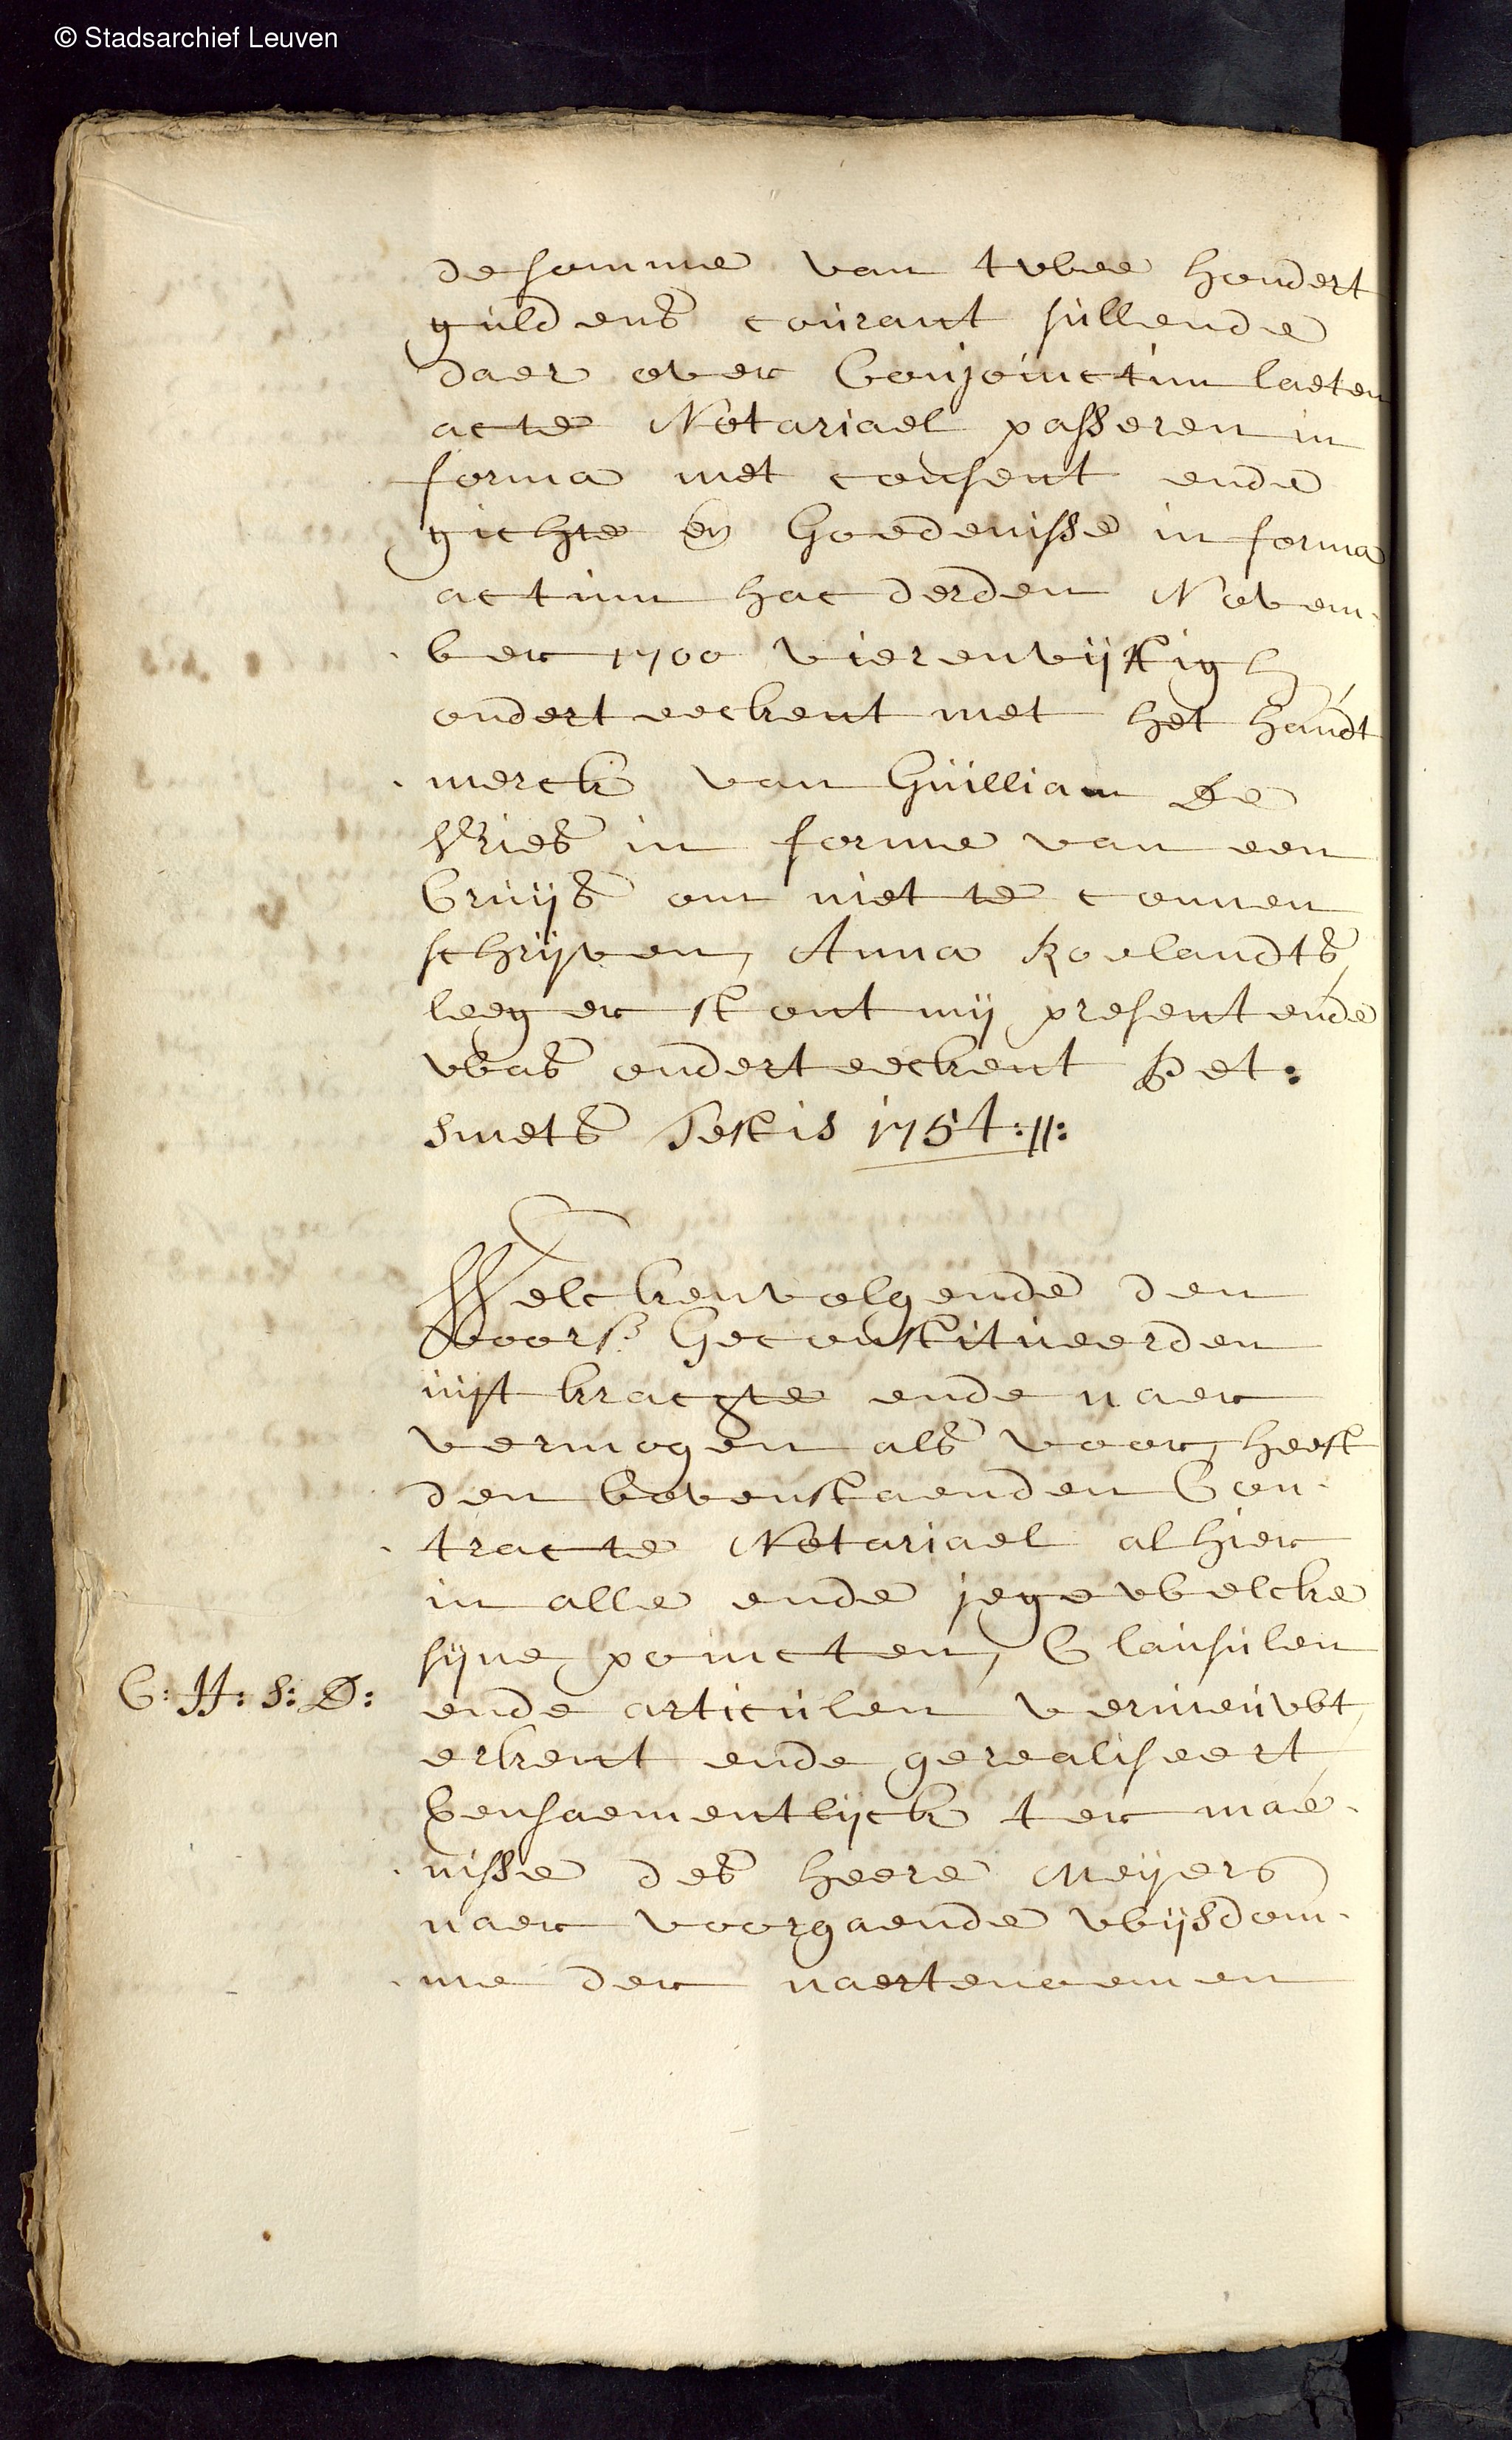 © Stadsarchief Leuven
de somme van twee hondert
guldens courant sullende
daer over Conjoinctim laeten
acte Notariael passeren in
forma met consent ende
gichte en Goedenisse in forma
actum hac derden Novem-
ber 1700 vierenvijftigh
onderteeckent met het handt
merck van Guilliam De
Vries in forme van een
Cruijs om niet te connen
schrijven, Anna Roelandts,
leeger stont mij present ende
was onderteeckent Pet:
Smets Testis 1754://:
Welckenvolgende den
voors. Geconstitueerden
uijt krachte ende naer
vermogen als voor, heeft
den bovenstaenden Con-
tracte Notariael alhier
in alle ende jegewelcke
sijne poincten, Clausulen
C: H: S: D:
ende articulen vernieuwt,
erkent ende gerealiseert,
Gensaementlijck ter mae-
nisse des heere Meijers
naer voorgaende wijsdom-
me der naertenoemen